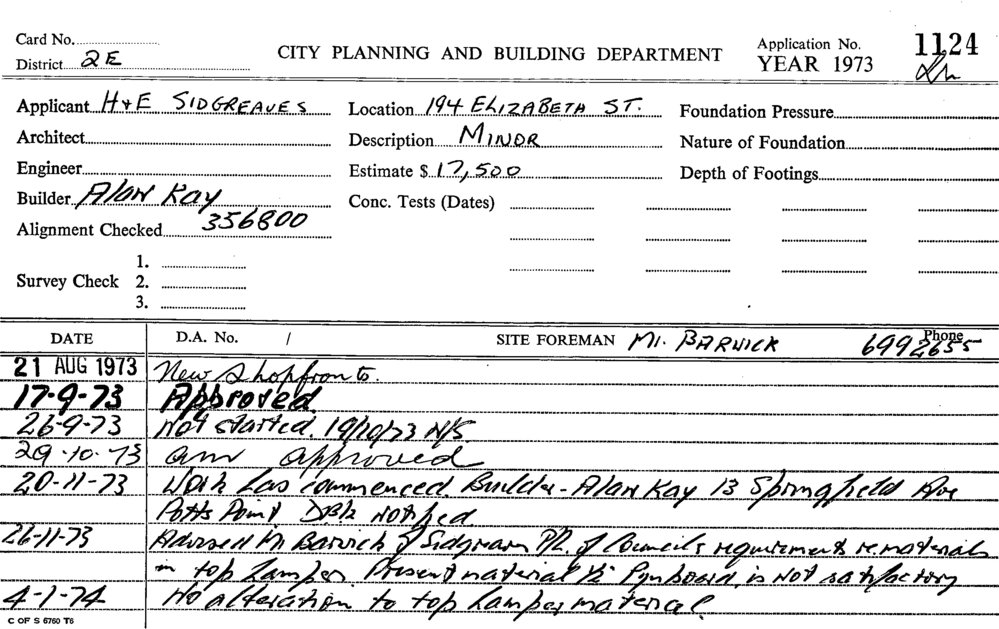 Card No.
CITY PLANNING AND BUILDING DEPARTMENT
Application No. 1124
District 2E
YEAR 1973
Applicant H & E SIDGREAVES
Location 194 ELIZABETH ST.
Foundation Pressure
Architect
Description MINOR
Nature of Foundation
Engineer
Estimate $ 17,500
Depth of Footings
Builder Alan Kay
Conc. Tests (Dates)
Alignment Checked 356800
Survey Check
1.
2.
3.
DATE D.A. No. / SITE FOREMAN Mr. BARWICK Phone 6992655
21 AUG 1973 New Shopfronts.
17-9-73 Approved
26-9-73 Not started. 19/10/73 N/S
29-10-73 am approved
20-11-73 Work has commenced. Builder - Alan Kay 13 Springfield Ave
Potts Point notified
26-11-73 Advised Mr Barwick of Sidgreaves P/L. of Council's requirements re. materials
in top hamper. Present material is not satisfactory
4-1-74 No alteration to top hamper material.
C OF S 6760 T6